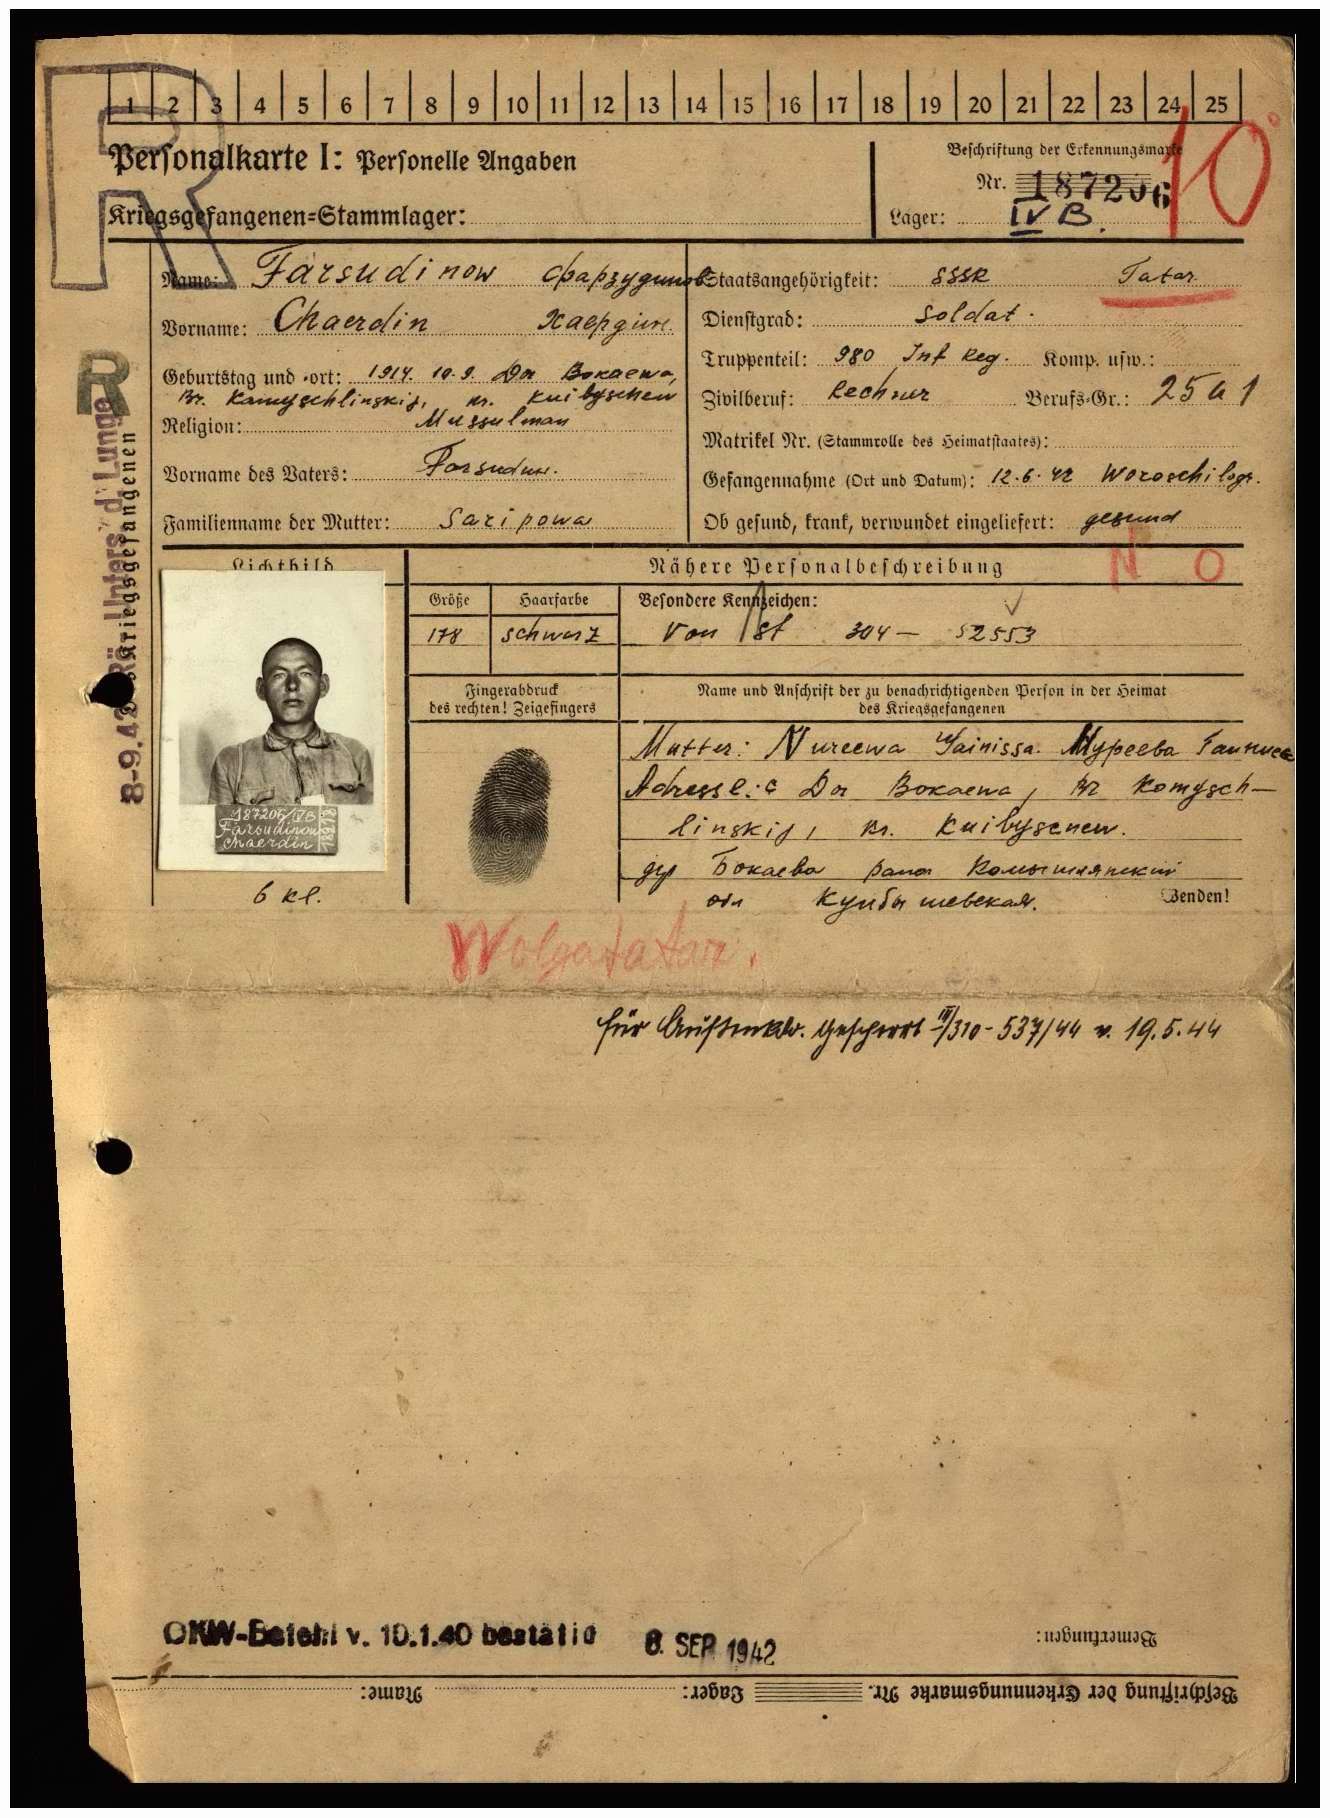 1 2 3 4 5 6 7 8 9 10 11 12 13 14 15 16 17 18 19 20 21 22 23 24 25
R
10
Personalkarte I: Personelle Angaben
Kriegsgefangenen-Stammlager:
Beschriftung der Erkennungsmarke
Nr. 187206
Lager: IV B.
Name: Farsudinow Фарзудинов
Vorname: Chaerdin Хаердин.
Geburtstag und -ort: 1914. 10.9. Dor Bokaewa,
Kr. Kamyschlinskij, Kr. Kuibyschew
Religion: Mussulman
Vorname des Vaters: Farsudin.
Familienname der Mutter: Saripowa
Staatsangehörigkeit: SSSR Tatar
Dienstgrad: Soldat.
Truppenteil: 980 Inf Reg. Komp. usw.:
Zivilberuf: Rechner Berufs-Gr.: 25 a 1
Matrikel Nr. (Stammrolle des Heimatstaates):
Gefangennahme (Ort und Datum): 12.6.42 Woroschilogr.
Ob gesund, krank, verwundet eingeliefert: gesund
N O
R
8-9.42 Rö. Unters. d. Lunge
Kriegsgefangenen
Lichtbild
Nähere Personalbeschreibung
Größe Haarfarbe Besondere Kennzeichen:
178 schwarz Von St 304 — 52553
Fingerabdruck
des rechten! Zeigefingers
Name und Anschrift der zu benachrichtigenden Person in der Heimat
des Kriegsgefangenen
Mutter: Nureewa Gainissa.
Adresse: Dor Bokaewa, Kr Komysch-
linskij, Kr. Kuibyschew.
дер Бокаева раион Комышлинский
обл Куйбышевская.
Wenden!
187206/IVB
Farsudinow
Chaerdin
6 kl.
Wolgatatar.
für Außenkdo. gesperrt III/310-537/44 v. 19.5.44
OKW-Befehl v. 10.1.40 bestätig
8. SEP. 1942
Bemerkungen:
Beschriftung der Erkennungsmarke Nr. Lager: Name: